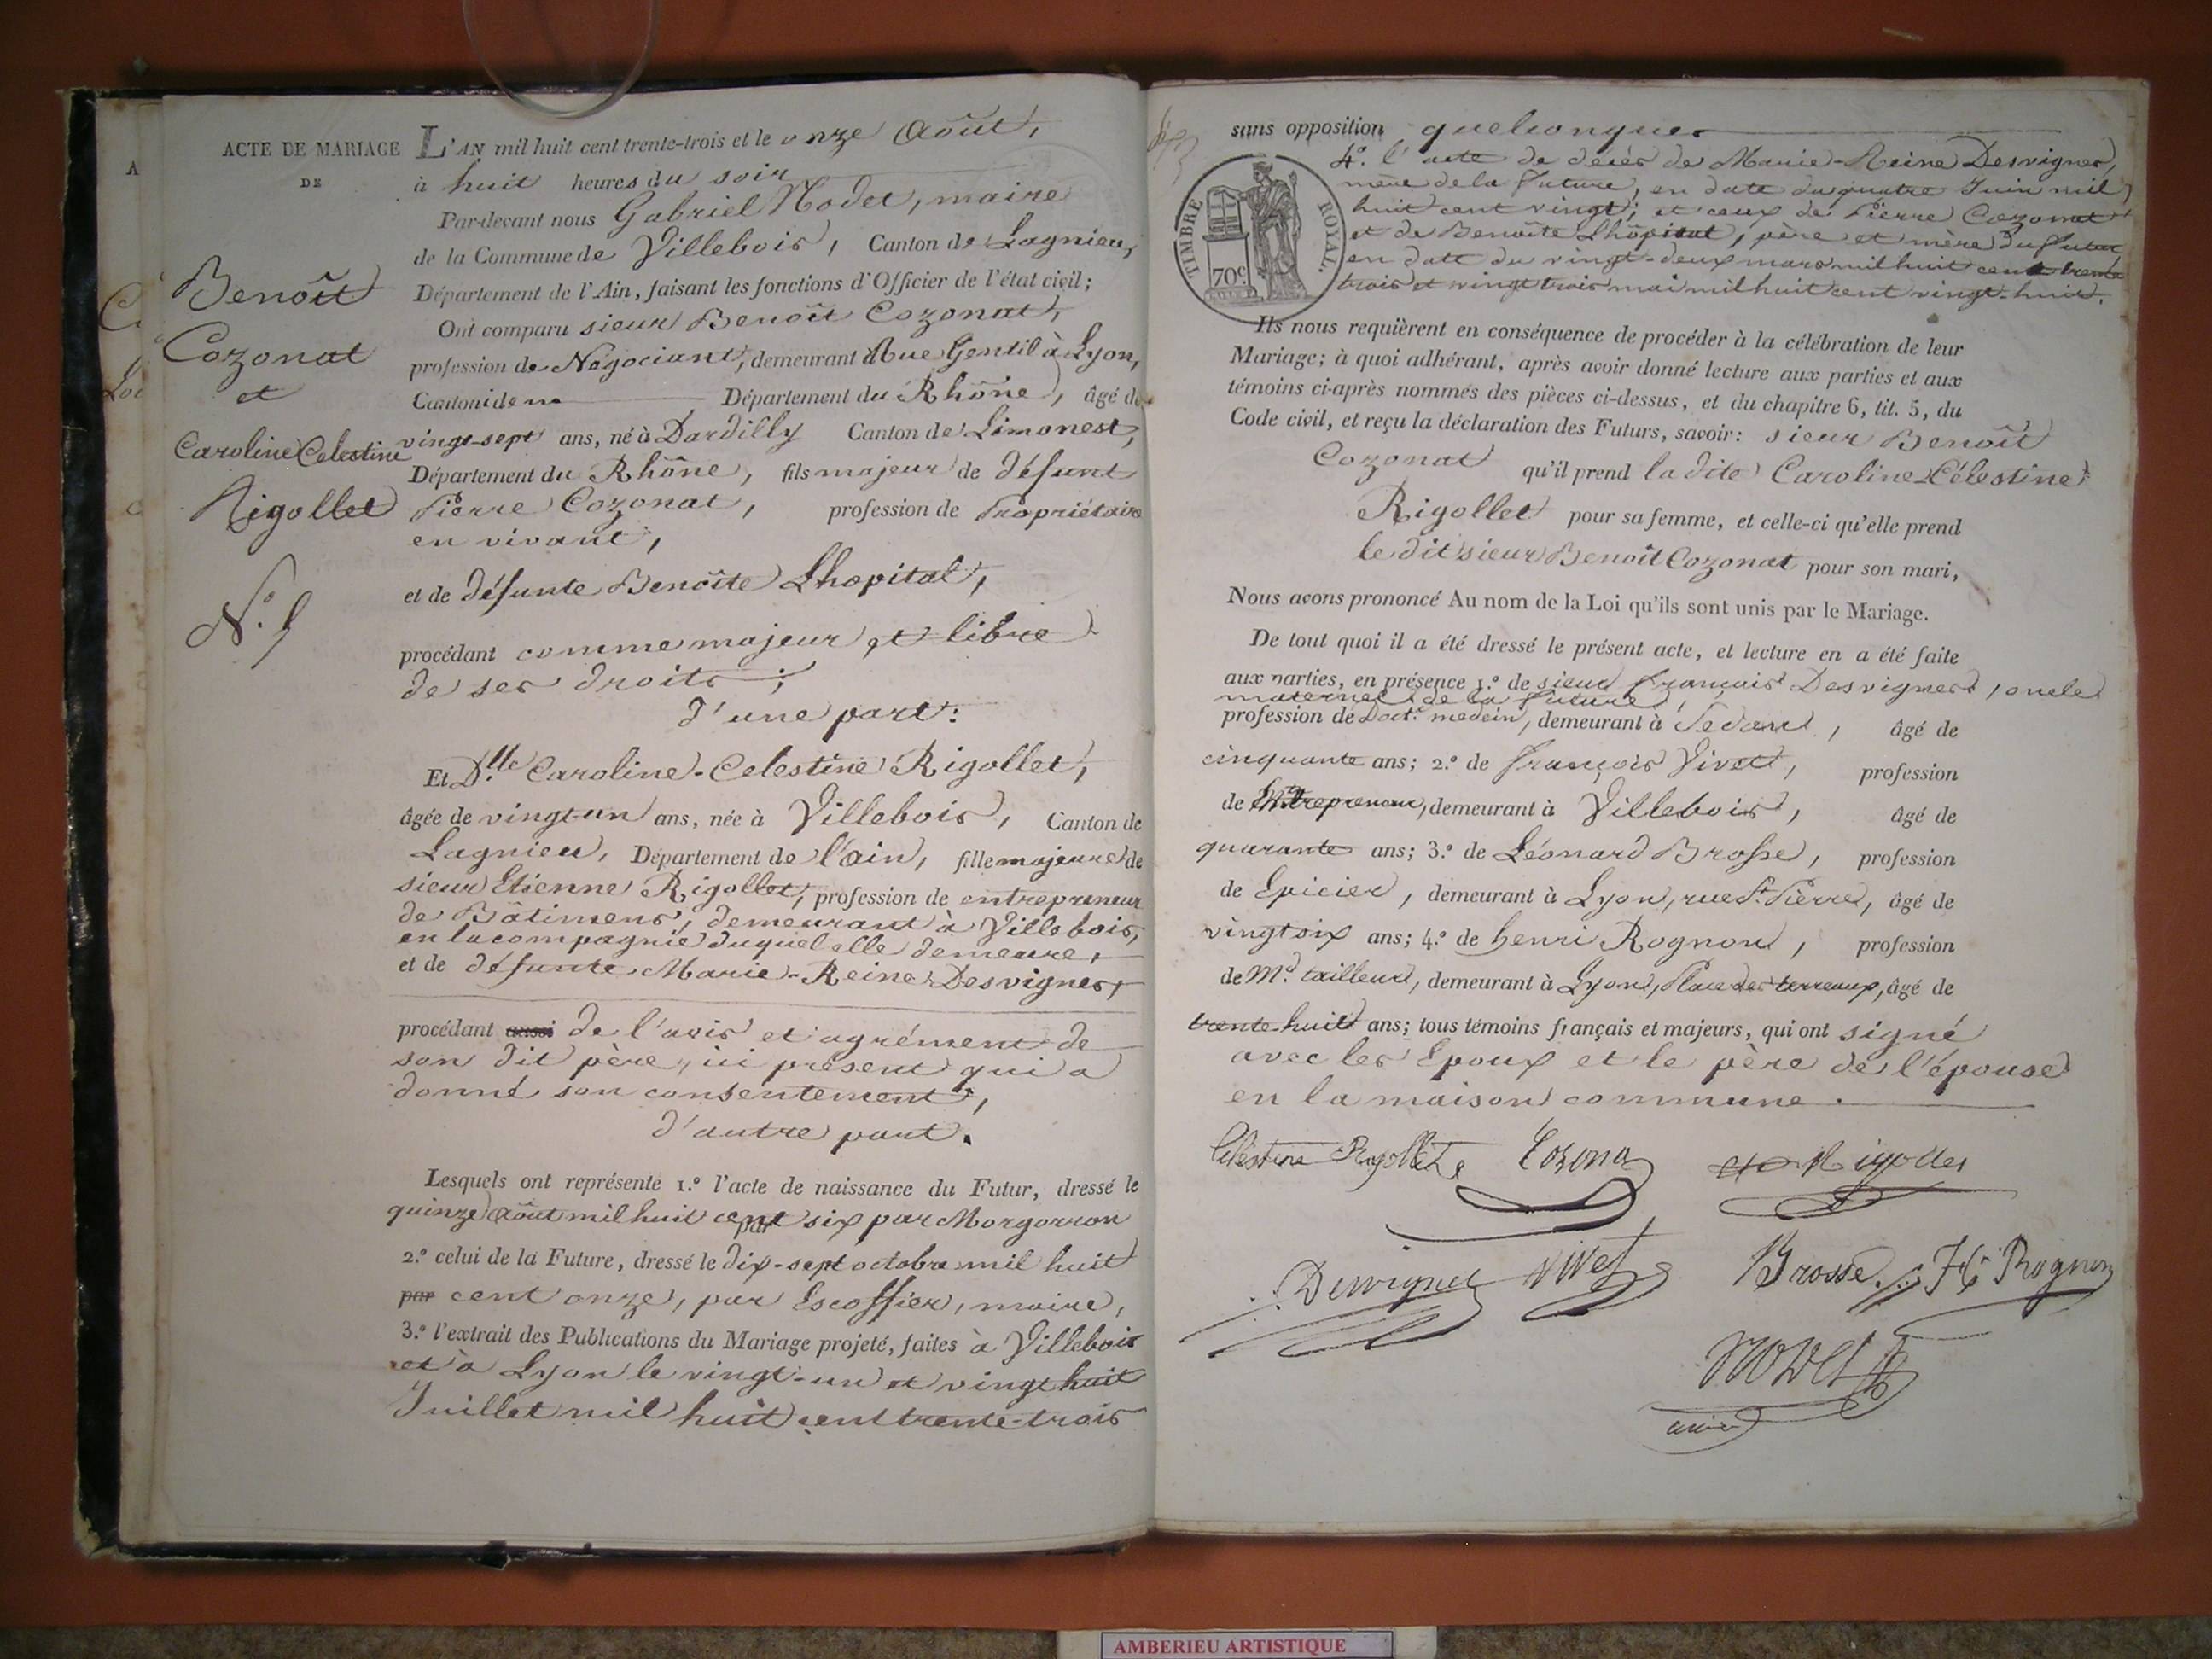 ACTE DE MARIAGE
DE
Benoît
Cozonat
et
Caroline Celestine
Rigollet
N.o 5
L'AN mil huit cent trente-trois et le onze Août,
à huit heures du soir
Par-devant nous Gabriel Nodet, maire
de la Commune de Villebois, Canton de Lagnieu,
Département de l'Ain, faisant les fonctions d'Officier de l'état civil;
Ont comparu sieur Benoît Cozonat,
profession de Négociant, demeurant Rue Gentil à Lyon,
Canton de Département du Rhône, âgé de
vingt-sept ans, né à Dardilly Canton de Limonest,
Département du Rhône, fils majeur de défunt
Pierre Cozonat, profession de Propriétaire
en vivant,
et de défunte Benoîte Lhopital,
procédant comme majeur et libre
de ses droits;
d'une part:
Et D.lle Caroline-Celestine Rigollet,
âgée de vingt-un ans, née à Villebois, Canton de
Lagnieu, Département de l'ain, fille majeure de
sieur Etienne Rigollet, profession de entrepreneur
de Bâtimens, demeurant à Villebois,
en la compagnie duquel elle demeure,
et de défunte Marie-Reine Desvignes,
procédant aussi de l'avis et agrément de
son dit père, ici présent qui a
donné son consentement,
d'autre part.
Lesquels ont représenté 1.o l'acte de naissance du Futur, dressé le
quinze Août mil huit cent six par Morgorron
par
2.o celui de la Future, dressé le dix-sept octobre mil huit
par cent onze, par Escoffier, maire,
3.o l'extrait des Publications du Mariage projeté, faites à Villebois
et à Lyon le vingt-un et vingt huit
Juillet mil huit cent trente-trois
sans opposition quelconques
TIMBRE ROYAL.
70c
4.o l'acte de décès de Marie-Reine Desvignes,
mère de la future, en date du quatre Juin mil
huit cent vingt; et ceux de Pierre Cozonat
et de Benoîte Lhôpital, père et mère du futur
en date du vingt-deux mars mil huit cent trente
trois et vingt trois mai mil huit cent vingt-huit.
Ils nous requièrent en conséquence de procéder à la célébration de leur
Mariage; à quoi adhérant, après avoir donné lecture aux parties et aux
témoins ci-après nommés des pièces ci-dessus, et du chapitre 6, tit. 5, du
Code civil, et reçu la déclaration des Futurs, savoir: sieur Benoît
Cozonat qu'il prend la dite Caroline-Célestine
Rigollet pour sa femme, et celle-ci qu'elle prend
le dit sieur Benoît Cozonat pour son mari,
Nous avons prononcé Au nom de la Loi qu'ils sont unis par le Mariage.
De tout quoi il a été dressé le présent acte, et lecture en a été faite
aux parties, en présence 1.o de sieur François Desvignes, oncle
maternel de la future,
profession de Doct. medein, demeurant à Sedan, âgé de
cinquante ans; 2.o de François Vivet, profession
de Entrepreneur, demeurant à Villebois, âgé de
quarante ans; 3.o de Léonard Brosse, profession
de Epicier, demeurant à Lyon, rue St. Pierre, âgé de
vingt six ans; 4.o de henri Rognon, profession
de M.d tailleur, demeurant à Lyon, Place des terreaux, âgé de
trente-huit ans; tous témoins français et majeurs, qui ont signé
avec les Epoux et le père de l'épouse
en la maison commune.
Célestine Rigollet Cozona Rigollet
Desvignes Vivet Brosse H. Rognon
Nodet
maire
AMBERIEU ARTISTIQUE